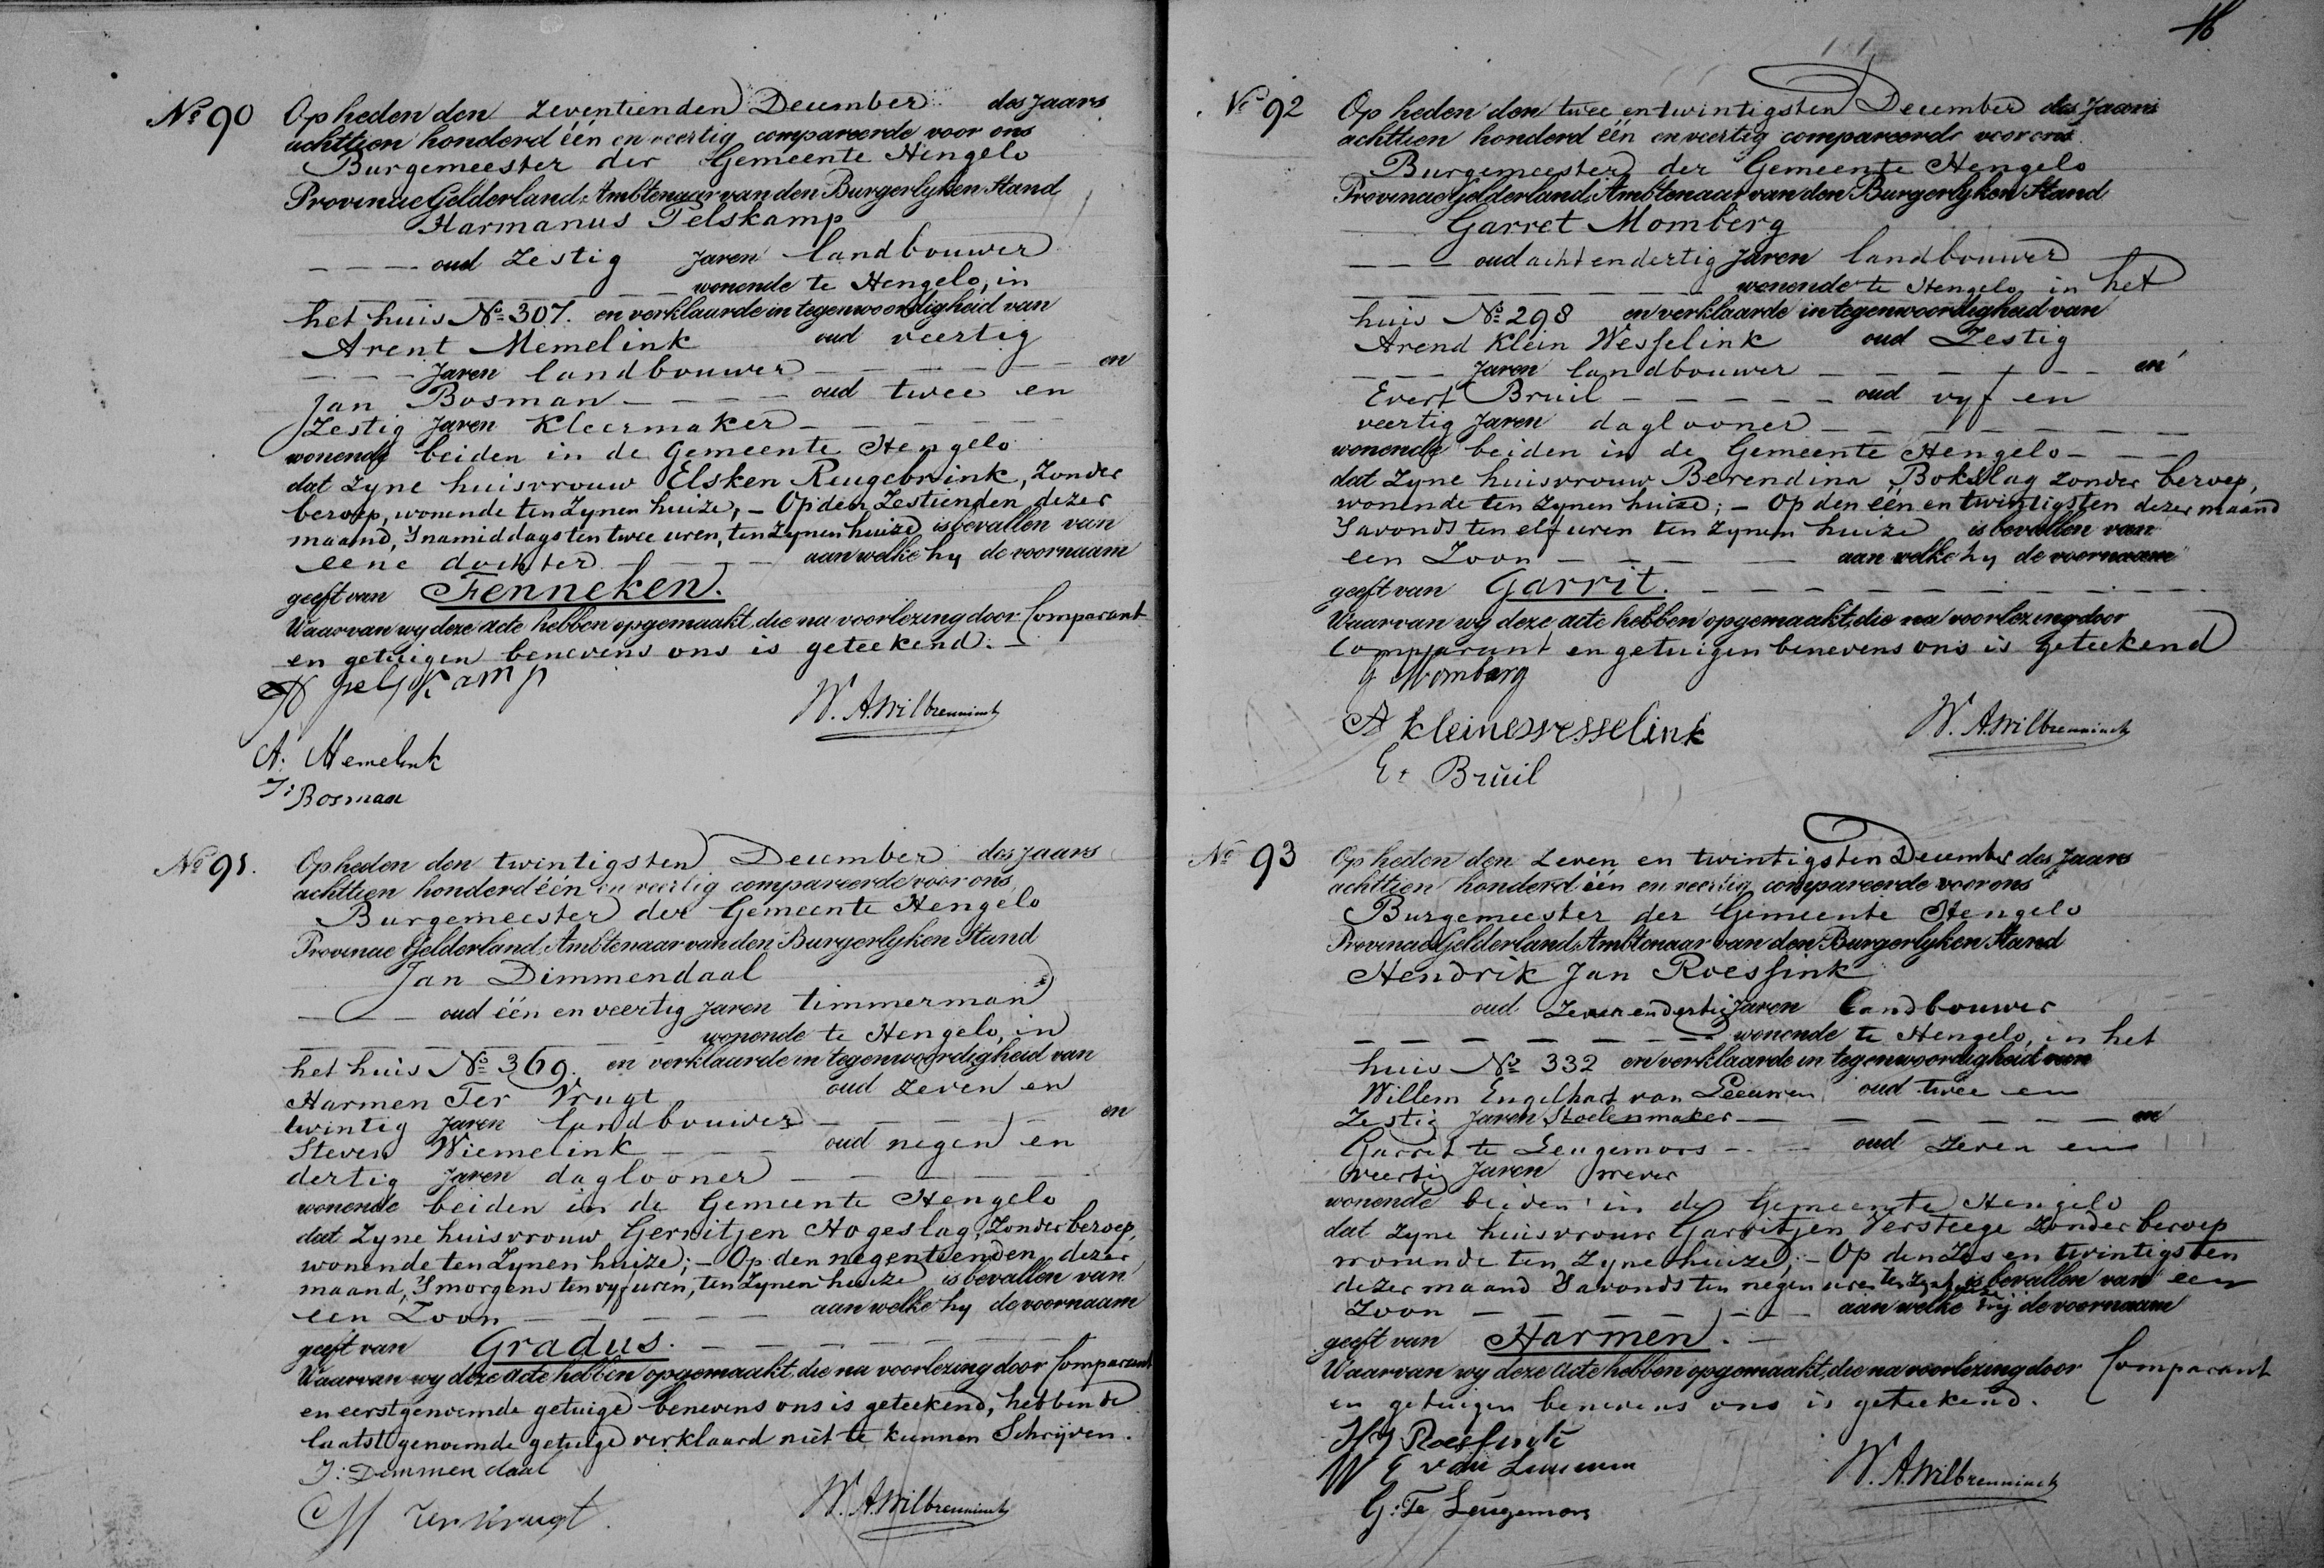 No 90
Op heden den Zeventienden December des Jaars
achttien honderd één en veertig compareerde voor ons
Burgemeester der Gemeente Hengelo
Provincie Gelderland, Ambtenaar van den Burgerlyken Stand
Harmanus Pelskamp
oud Zestig Jaren landbouwer
wonende te Hengelo, in
het huis No 307. en verklaarde in tegenwoordigheid van
Arent Memelink oud veertig
Jaren landbouwer en
Jan Bosman oud twee en
Zestig Jaren Kleermaker
wonende beiden in de Gemeente Hengelo
dat Zyne huisvrouw Elsken Reugebrink, Zonder
beroep, wonende ten Zynen huize, - Op den Zestienden dezer
maand, Snamiddags ten twee uren, ten Zynen huize is bevallen van
eene dochter aan welke hy de voornaam
geeft van Fenneken.
Waarvan wy deze acte hebben opgemaakt, die na voorlezing door Comparant
en getuigen benevens ons is geteekend. -
H pelskamp
W. A. Wilbrenninck
A. Memelink
J: Bosman
No 91.
Op heden den twintigsten December des Jaars
achttien honderd één en veertig compareerde voor ons
Burgemeester der Gemeente Hengelo
Provincie Gelderland, Ambtenaar van den Burgerlyken Stand
Jan Dimmendaal
oud één en veertig Jaren timmerman
wonende te Hengelo, in
het huis No 369. en verklaarde in tegenwoordigheid van
Harmen Ter Vrugt oud Zeven en
twintig Jaren landbouwer en
Steven Wiemelink oud negen en
dertig Jaren daglooner
wonende beiden in de Gemeente Hengelo
dat Zyne huisvrouw Gerritjen Hogeslag, Zonder beroep,
wonende ten Zynen huize; - Op den negenteenden dezer
maand, Smorgens ten vyf uren, ten Zynen huize is bevallen van
een Zoon aan welke hy de voornaam
geeft van Gradus.
Waarvan wy deze acte hebben opgemaakt, die na voorlezing door Comparant
en eerstgenoemde getuige benevens ons is geteekend, hebbende
laatstgenoemde getuige verklaard niet te kunnen Schrijven.
J: Dimmendaal
W. A. Wilbrenninck
H ter Vrugt.
16
No 92
Op heden den twee en twintigsten December des Jaars
achttien honderd één en veertig compareerde voor ons
Burgemeester der Gemeente Hengelo
Provincie Gelderland, Ambtenaar van den Burgerlyken Stand
Garret Momberg
oud acht en dertig Jaren landbouwer
wonende te Hengelo in het
huis No 298 en verklaarde in tegenwoordigheid van
Arend Klein Wesselink oud Zestig
Jaren landbouwer en
Evert Bruil oud vyf en
veertig Jaren daglooner
wonende beiden in de Gemeente Hengelo
dat Zyne huisvrouw Berendina Bokslag Zonder beroep,
wonende ten Zynen huize; - Op den één en twintigsten dezer maand
Savonds ten elf uren ten Zynen huize is bevallen van
een Zoon aan welke hy de voornaam
geeft van Garrit.
Waarvan wy deze acte hebben opgemaakt, die na voorlezing door
Comparant en getuigen benevens ons is geteekend
G Momberg
W. A. Wilbrenninck
A kleinewesselink
E: Bruil
No 93
Op heden den Zeven en twintigsten December des Jaars
achttien honderd één en veertig compareerde voor ons
Burgemeester der Gemeente Hengelo
Provincie Gelderland, Ambtenaar van den Burgerlyken Stand
Hendrik Jan Roessink
oud Zeven en dertig Jaren landbouwer
wonende te Hengelo, in het
huis No 332 en verklaarde in tegenwoordigheid van
Willem Engelhart van Leeuwen oud twee en
Zestig Jaren Stoelenmaker en
Garrit te Leugemors oud Zeven en
veertig Jaren wever
wonende beiden in de Gemeente Hengelo
dat Zyne huisvrouw Garritjen Versteege Zonder beroep
wonende ten Zyne huize; - Op den Zes en twintigsten
dezer maand Savonds ten negen uren ten Zynen huize is bevallen van een
Zoon aan welke hij de voornaam
geeft van Harmen.
Waarvan wy deze acte hebben opgemaakt, die na voorlezing door Comparant
en getuigen benevens ons is geteekend.
H J Roessink
W E van Leeuwen
W. A. Wilbrenninck
G: Te Leugemors